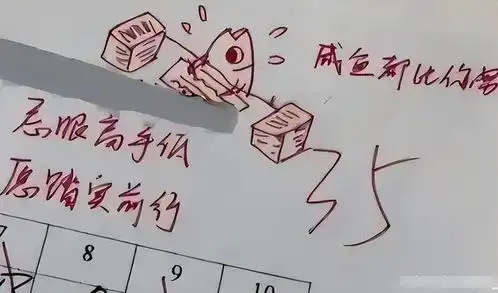 咸鱼都比你
忌眼高手低
愿踏实前行
35
7 8 9 10